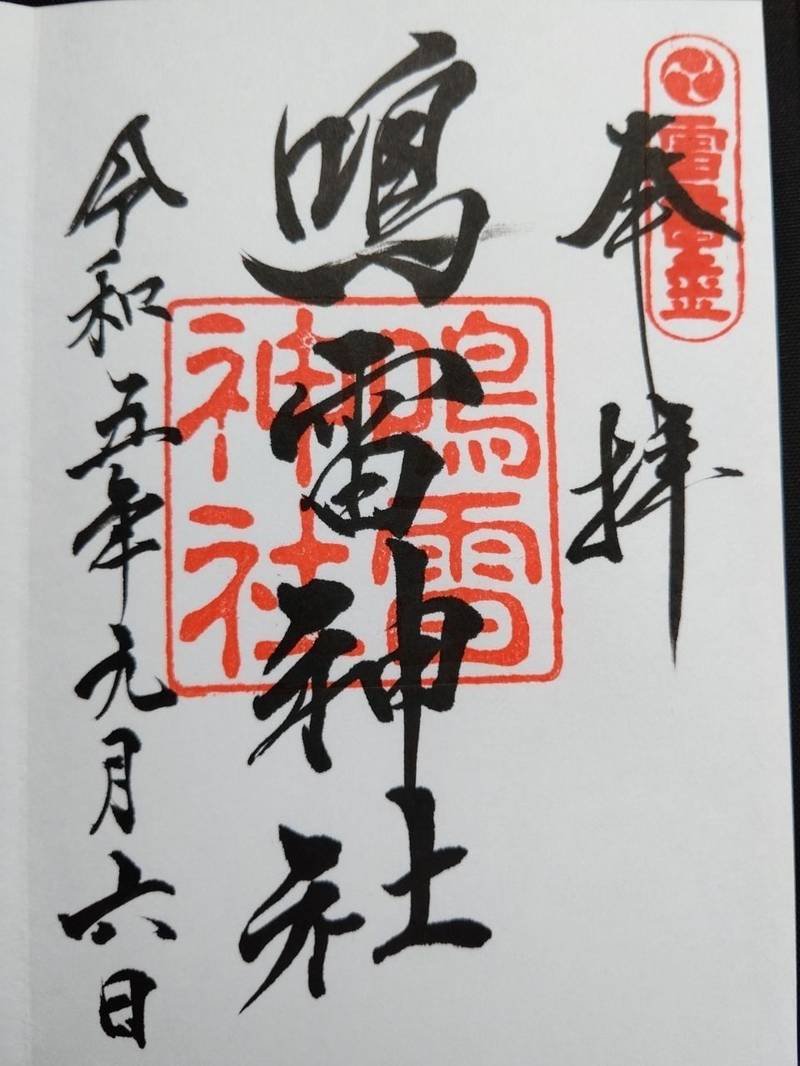 奉拝
鳴雷神社
鳴雷
神社
令和五年元月六日